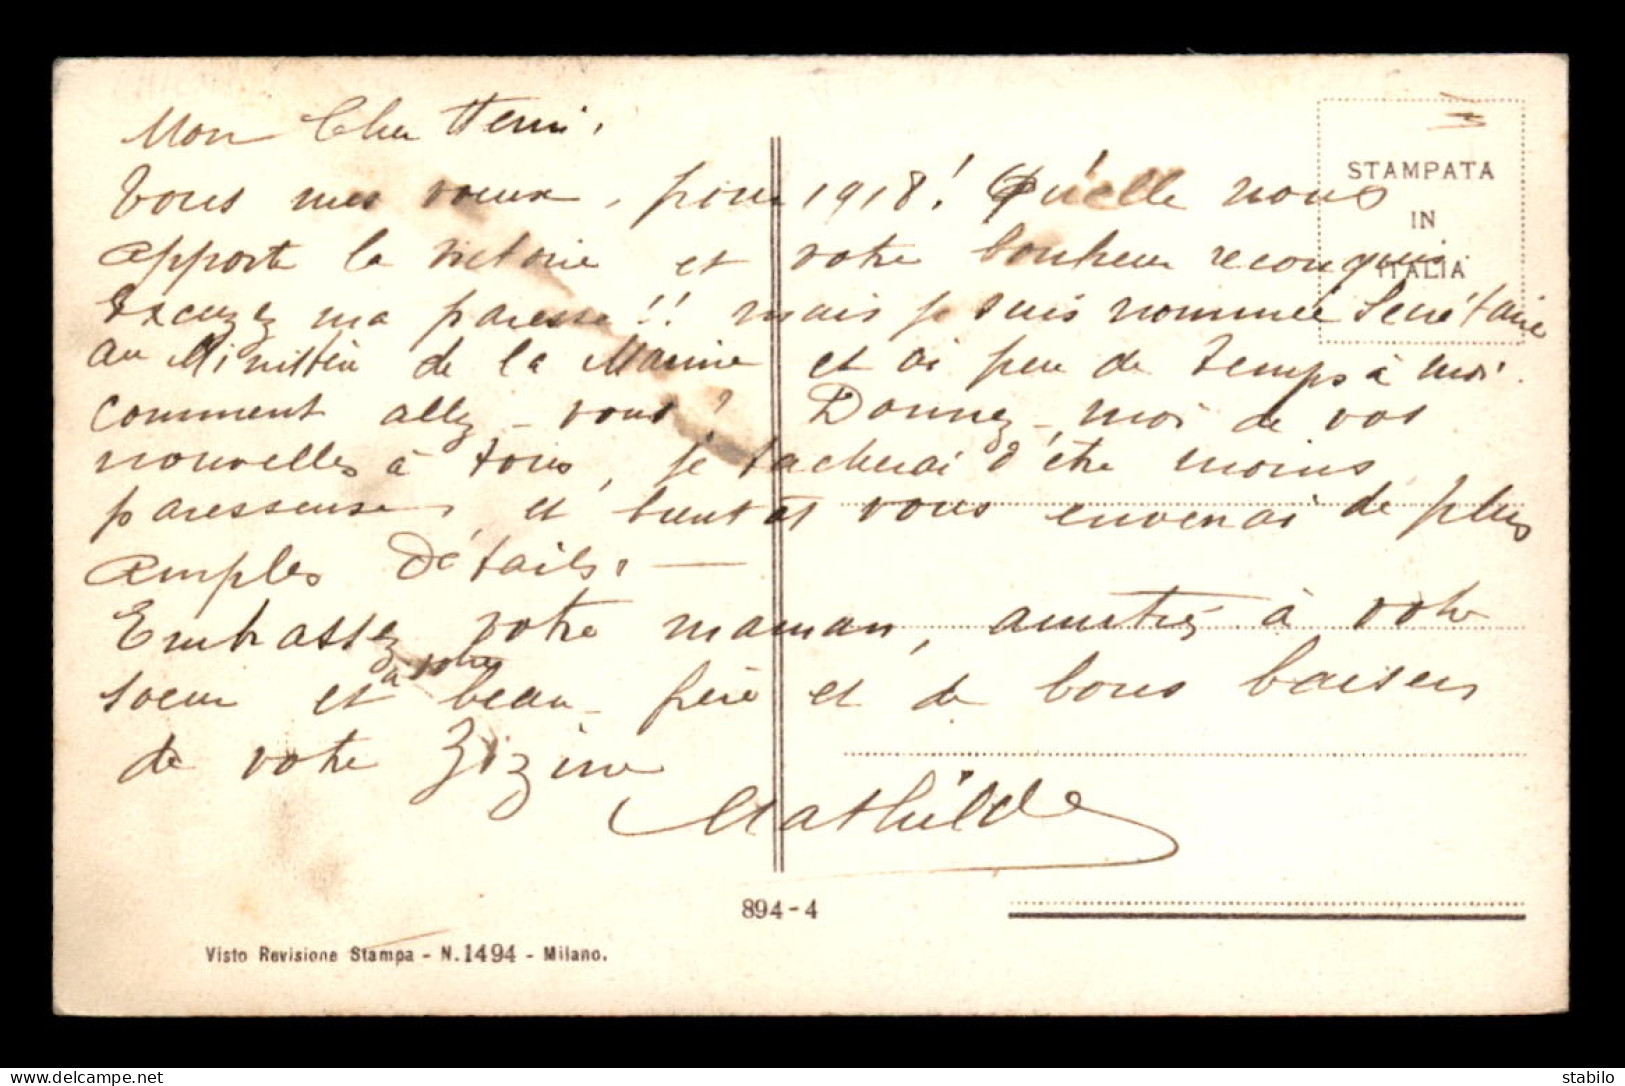 Mon Cher Henri,
Tous mes voeux, pour 1918! Qu'elle nous
apporte la victoire et votre bonheur reconquis.
Excuzez ma paresse!! mais je suis nommée Secrétaire
au Ministère de la Marine et ai peu de temps à moi.
Comment allez-vous? Donnez-moi de vos
nouvelles à tous, je tacherai d'être moins
paresseuse, et bientôt vous enverrai de plus
amples détails. —
Embrassez votre maman, amitiés à votre
soeur et à votre beau-frère et de bons baisers
de votre Zizine
Mathilde
STAMPATA
IN
ITALIA
894-4
Visto Revisione Stampa - N. 1494 - Milano.
https://www.delcampe.net
stabilo